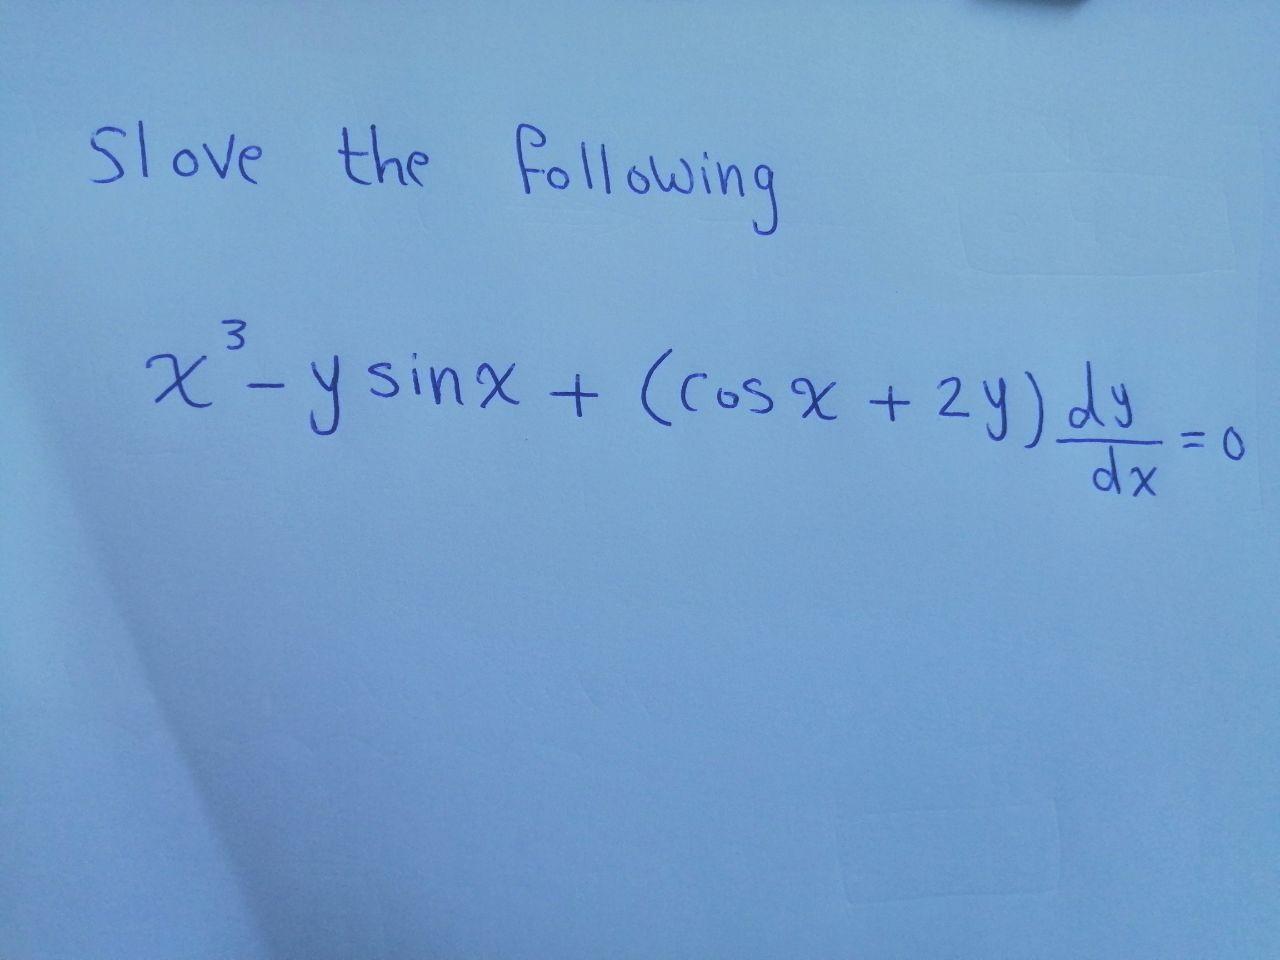 Slove the following
x³ - y sinx + (cos x + 2y) dy/dx = 0